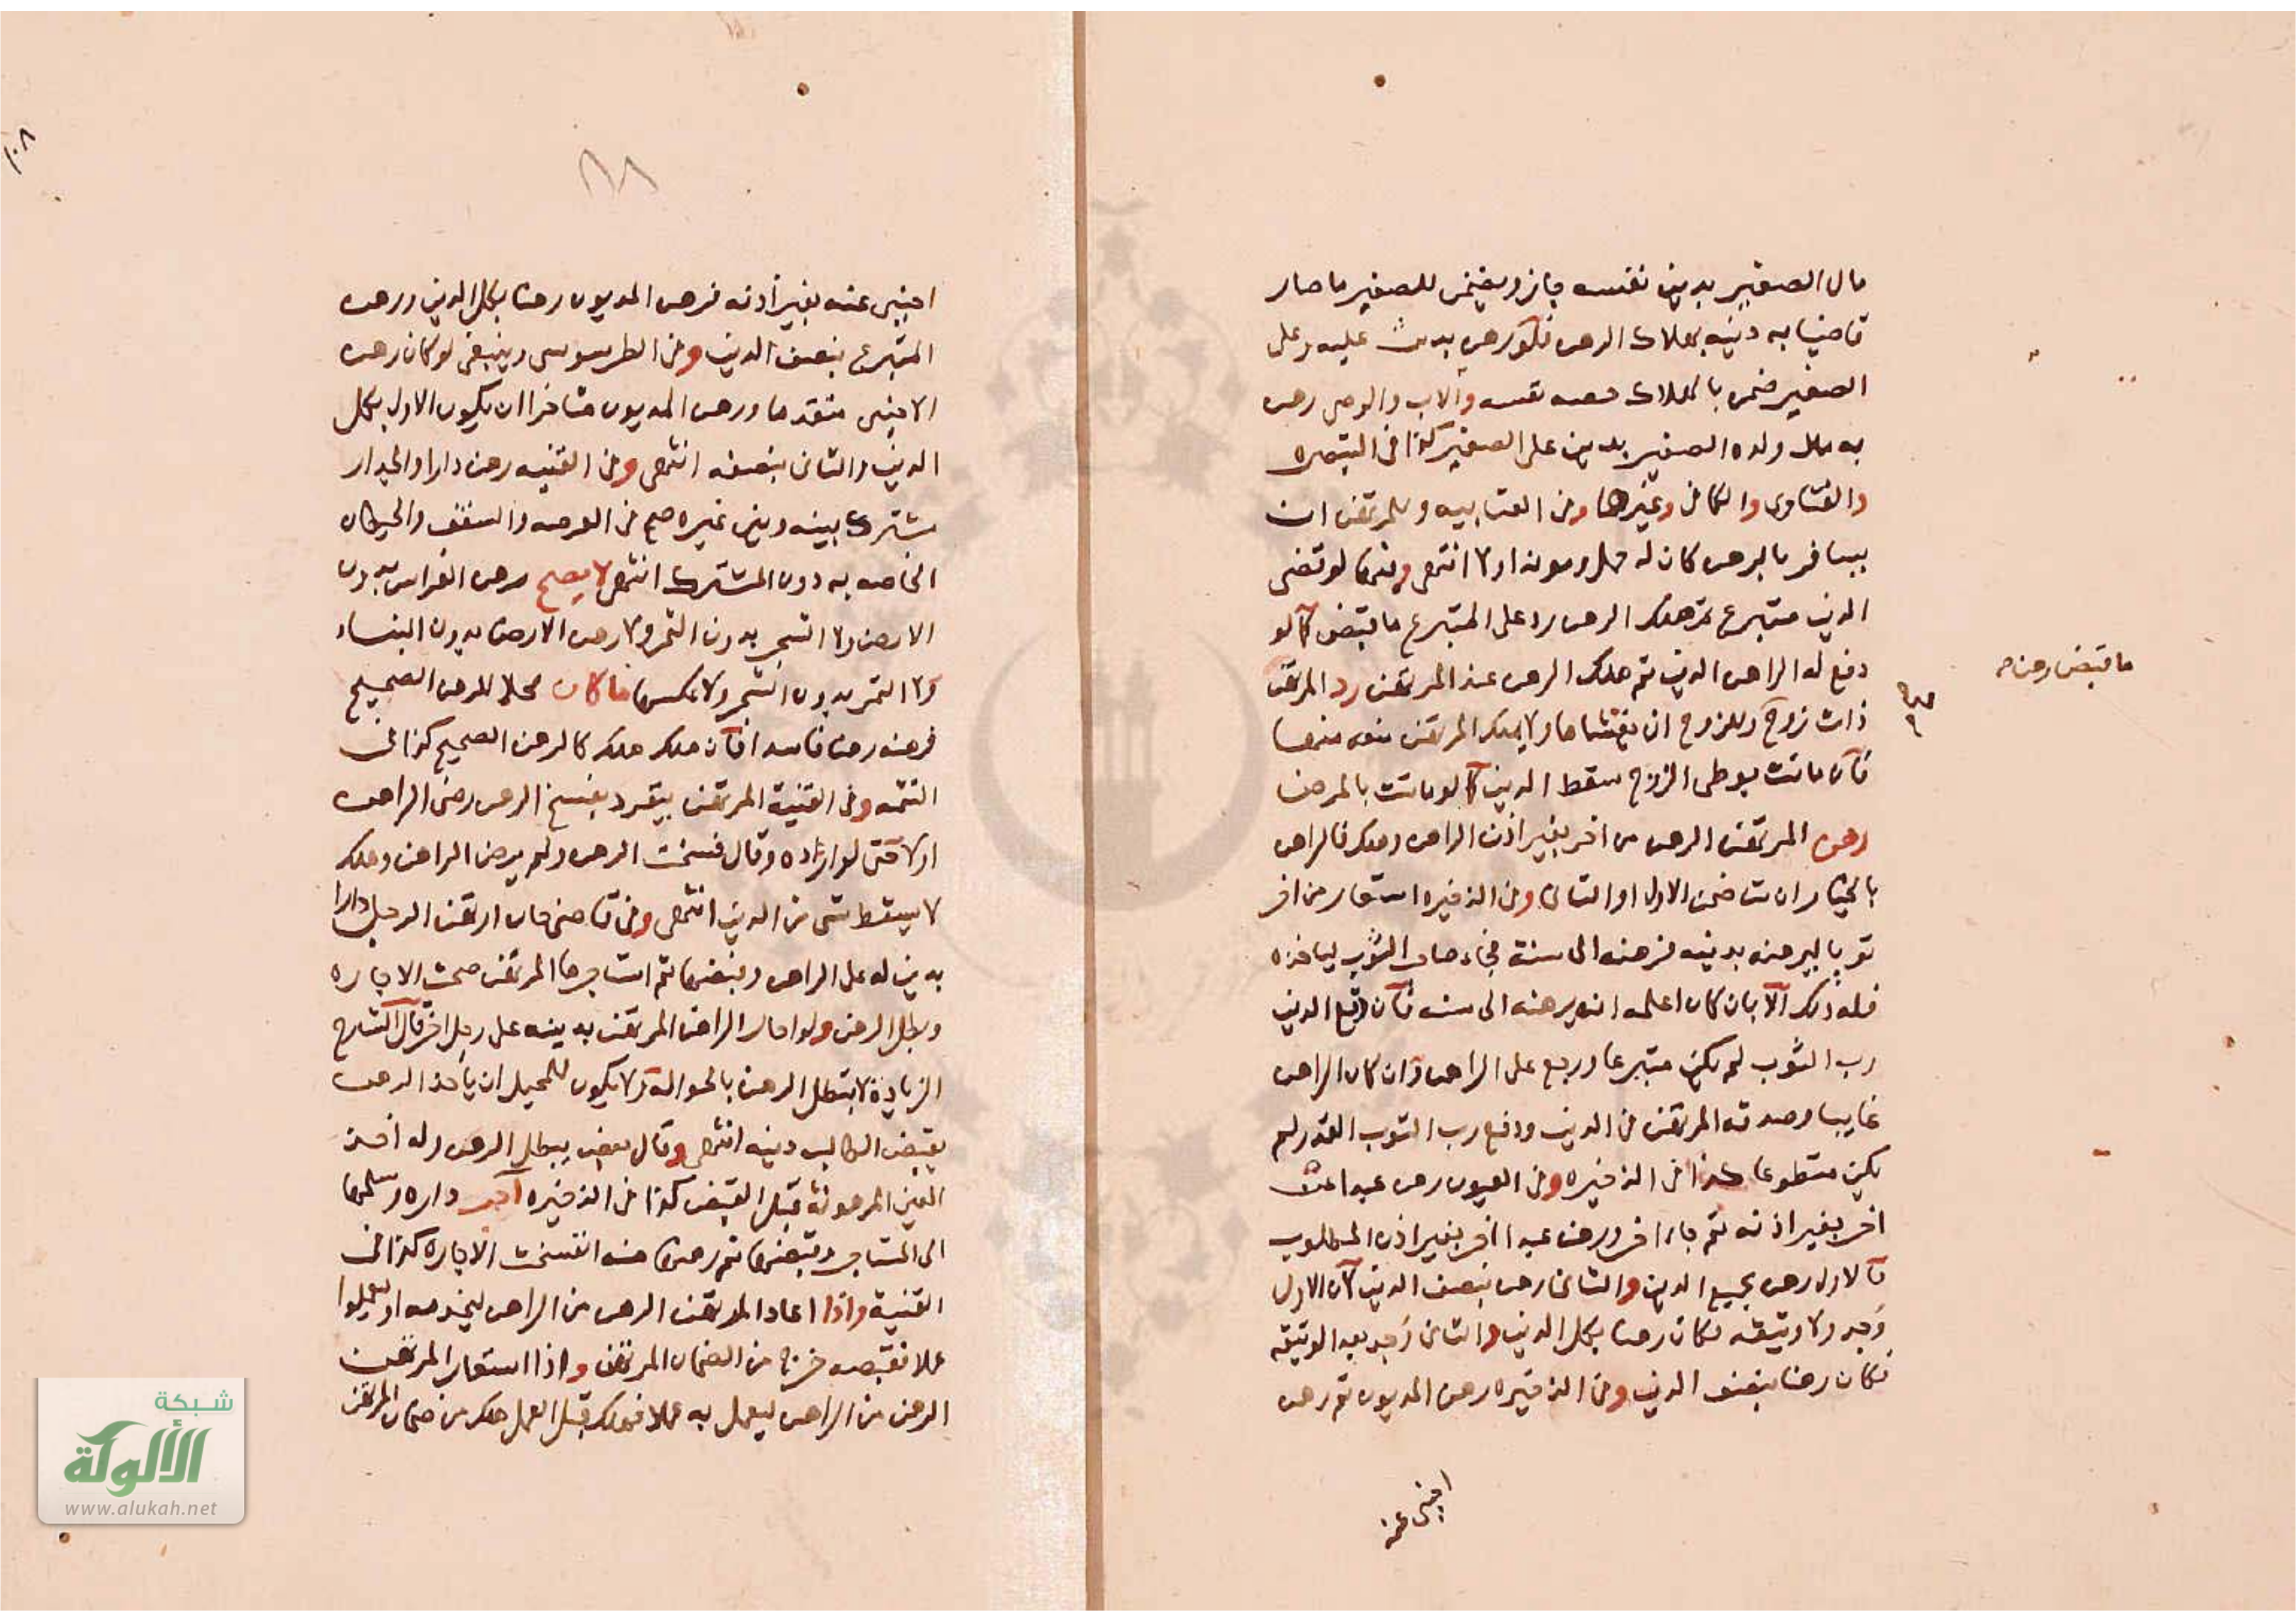 مال الصغير بدين نفسه جاز ويضمن للصغير ما صار
قاضيا به دينه بهلاك الرهن فلو رهن بدين عليه وعلى
الصغير ضمن بالهلاك حصه نفسه والاب والوصي رهن
به مال ولده الصغير بدين على الصغير كذا في التبصره
والفتاوى والكافي وغيرها وفي العتابيه وللمرتهن ان
يسافر بالرهن كان له حمل ومونه او لا انتهى وفيها لو قضى
الدين متبرع ثم هلك الرهن رد على المتبرع ما قبض كما لو
دفع له الراهن الدين ثم هلك الرهن عند المرتهن رد المرتهن
ما قبض رهن
ذات زوج وللزوج ان يغشاها ولا يملك المرتهن منعه منها
فان ماتت بوطى الزوج سقط الدين كما لو ماتت بالمرض
رهن المرتهن الرهن من اخر بغير اذن الراهن وهلك فالراهن
بالخيار ان شا ضمن الاول او الثاني وفي الذخيره استعار من اخر
ثوبا ليرهنه بدينه فرهنه الى سنة فجاء صاحب الثوب لياخذه
فله ذلك الا بان كان اعلمه انه يرهنه الى سنه فان دفع الدين
رب الثوب لم يكن متبرعا ورجع على الراهن وان كان الراهن
غايبا وصدقه المرتهن في الدين ودفع رب الثوب القدر لم
يكن متطوعا كذا في الذخيره وفي العيون رهن عبدا عن
اخر بغير اذنه ثم جاء اخر ورهن عبدا اخر بغير اذن المطلوب
فالاول رهن بجميع الدين والثاني رهن بنصف الدين لان الاول
وجد ولا وثيقه فكان رهنا بكل الدين والثاني وجد بعد الوثيقه
فكان رهنا بنصف الدين وفي الذخيره رهن المديون ثم رهن
اجنبي عنه
١٠٨
اجنبي عنه بغير اذنه فرهن المديون رهنا بكل الدين ورهن
المتبرع بنصف الدين وفي الطرسوسى وينبغي لو كان رهن
الاجنبي متقدما ورهن المديون متاخرا ان يكون الاول بكل
الدين والثاني بنصفه انتهى وفي القنيه رهن دارا والجدار
مشترك بينه وبين غيره صح في العرصه والسقف والحيطان
الخاصه به دون المشترك انتهى لا يصح رهن الغراس بدون
الارض ولا الشجر بدون الثمر ولا رهن الارض بدون البناء
ولا الثمر بدون الشجر ولا عكسها ما كان محلا للرهن الصحيح
فرهنه رهنا فاسدا فان هلك هلك كالرهن الصحيح كذا في
التتمه وفي القنية المرتهن ينفرد بفسخ الرهن رضى الراهن
او لا حتى لو اراده وقال فسخت الرهن ولم يرض الراهن وهلك
لا يسقط شى من الدين انتهى وفي قاضي خان ارتهن الرجل دارا
بدين له على الراهن وقبضها ثم استاجرها المرتهن صحت الاجاره
وبطل الرهن ولو احال الراهن المرتهن بدينه على رجل اخر قال الشارح
الزيادة لا يبطل الرهن بالحواله ولا يكون للمحيل ان ياخذ الرهن
بقبض الطالب دينه انتهى وقال بعض يبطل الرهن وله اخذ
العين المرهونة قبل القبض كذا في الذخيره آجر داره وسلمها
الى المستاجر وقبضها ثم رهنها منه انفسخت الاجاره كذا في
القنية واذا اعاد المرتهن الرهن من الراهن ليخدمه او ليعملوا
عملا فقبضه خرج من الضمان المرتهن واذا استعار المرتهن
الرهن من الراهن ليعمل به عملا فهلك قبل العمل هلك من ضمان المرتهن
شبكة
الألوكة
www.alukah.net